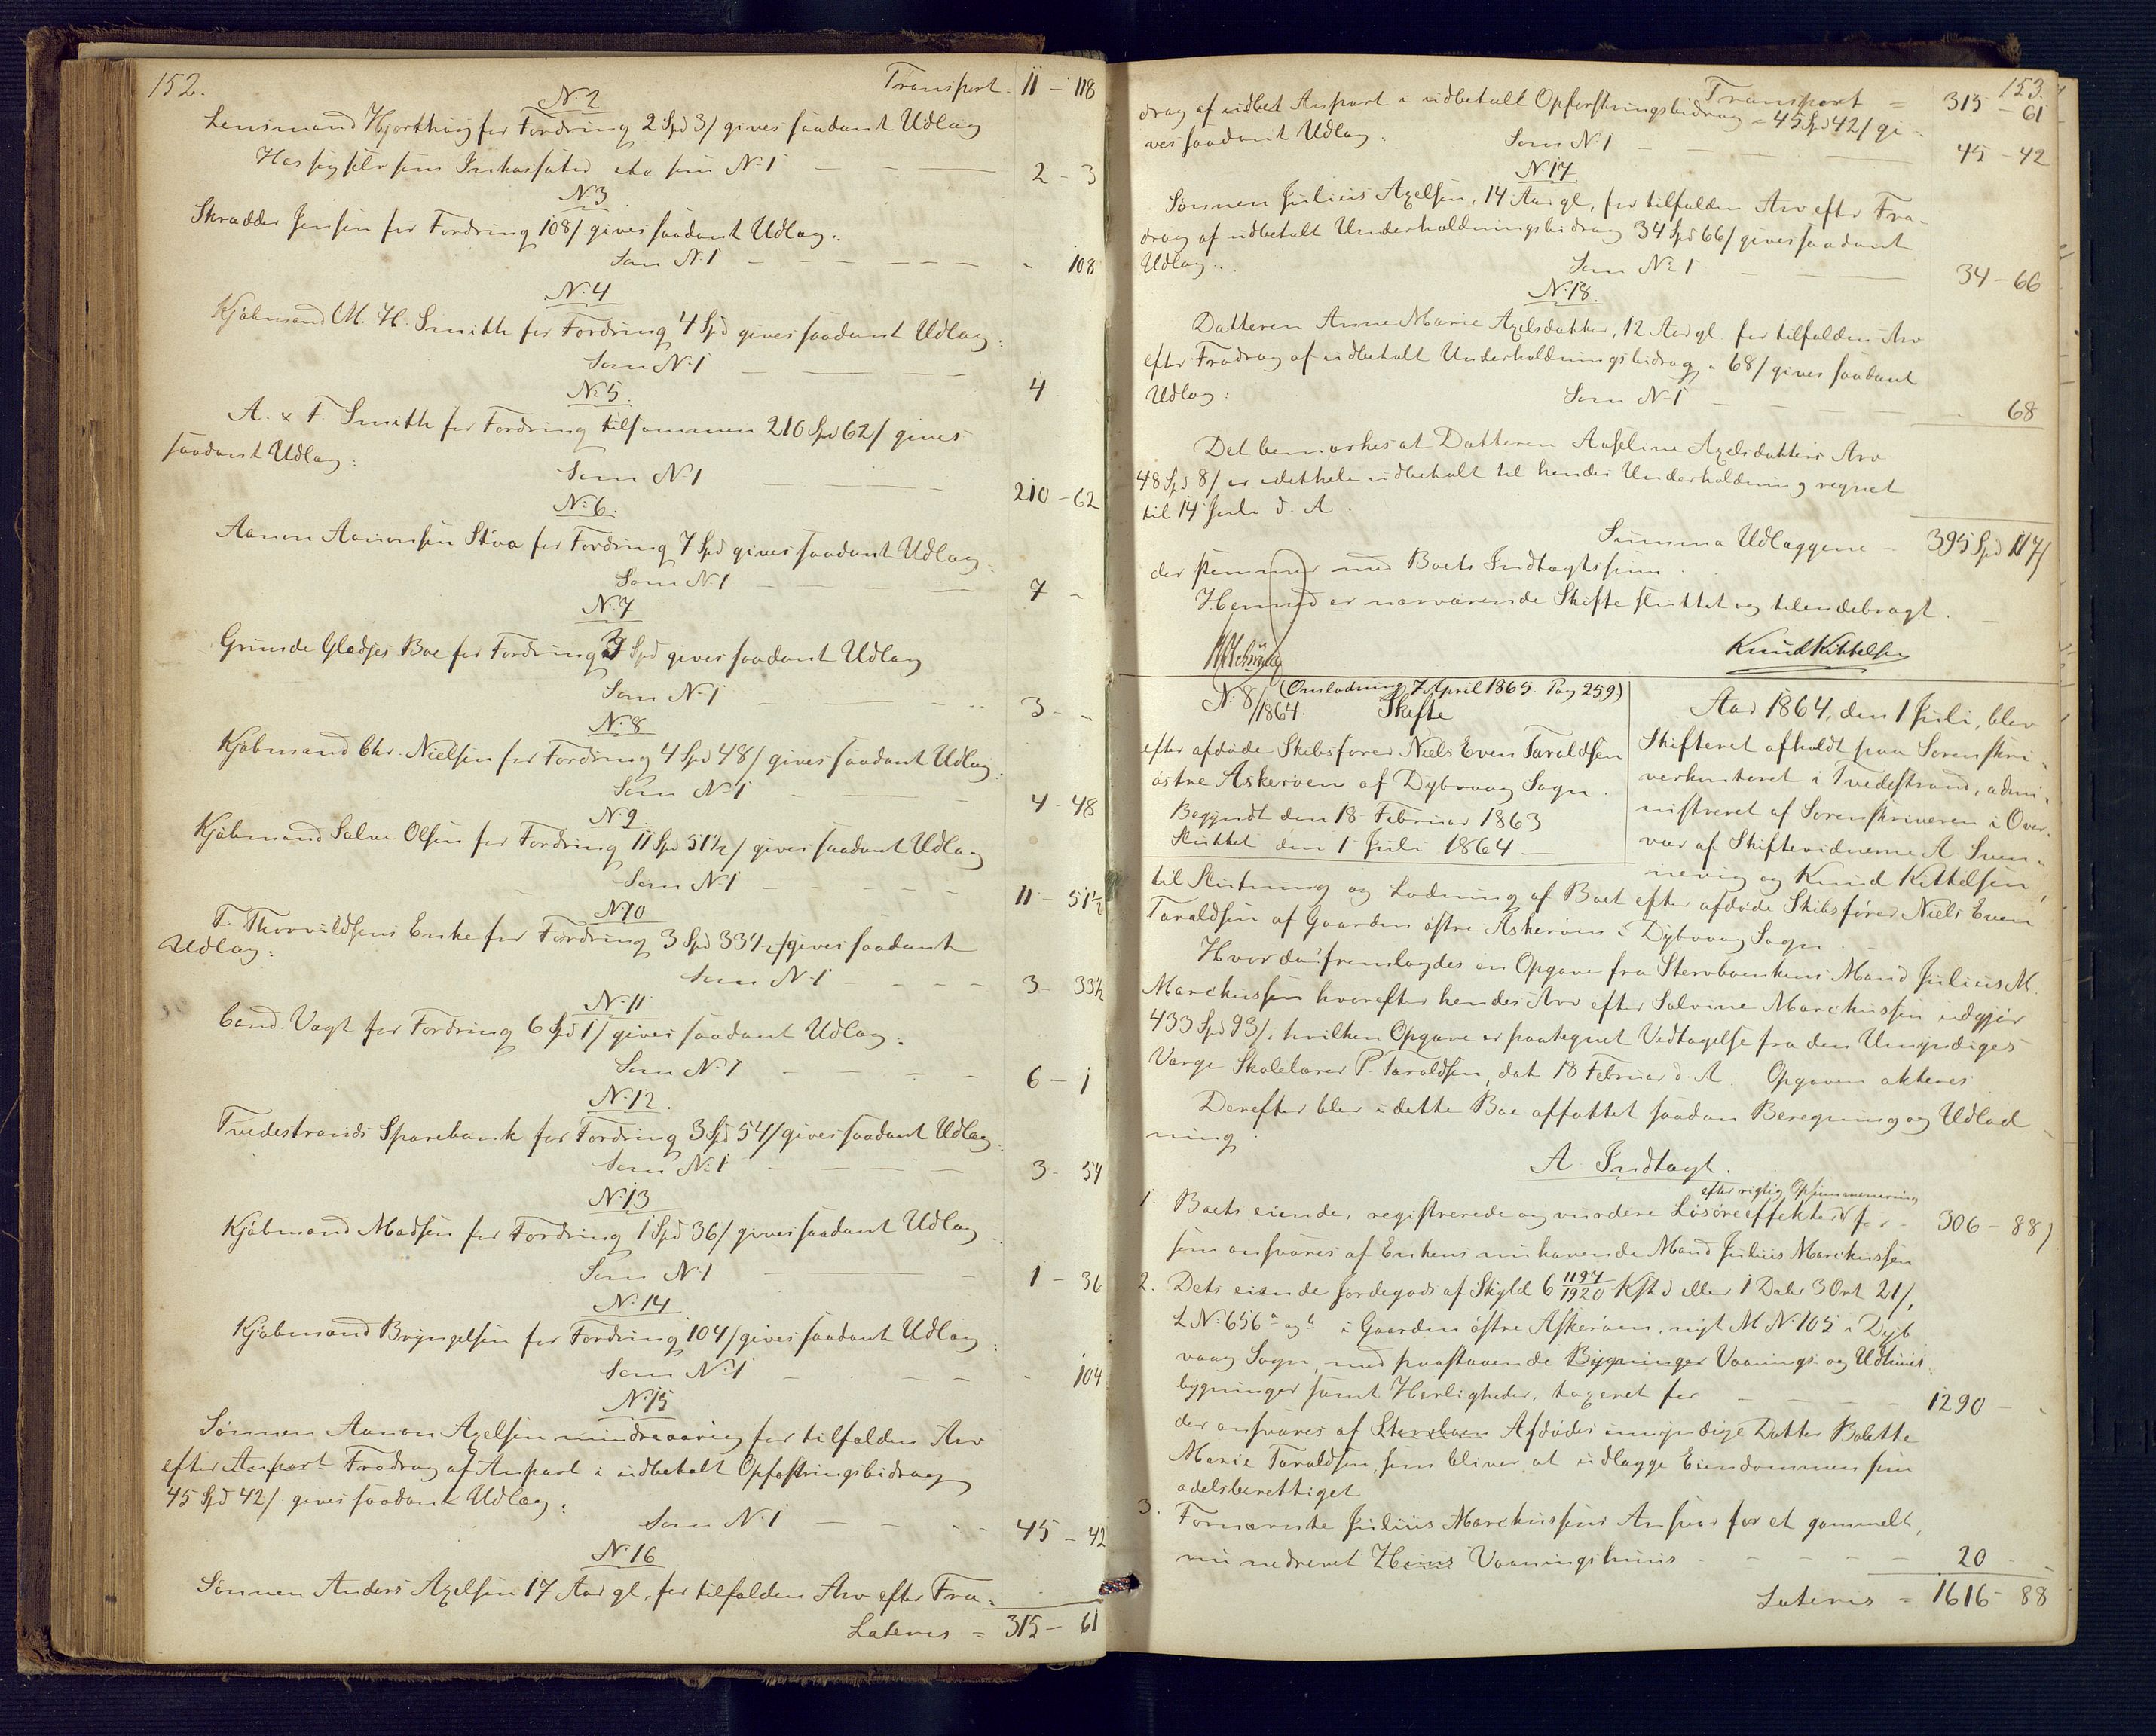 152.
Transport = 11 - 118
N. 2
Lensmand Hjorthøy for Fordring 2 Spd 3/ gives saadant Udlæg
Hos sig selv som Inkassator etc som N. 1 2 - 3
N. 3
Skrædder Jensen for Fordring 108/ gives saadant Udlæg:
Som N. 1 - 108
N. 4
Kjøbmand M. H. Smith for Fordring 4 Spd gives saadant Udlæg:
Som N. 1 4
N. 5
A. & F. Smith for Fordring tilsammen 210 Spd 62/ gives
saadant Udlæg:
Som N. 1 210 - 62
N. 6.
Aanon Aanonsen Stea for Fordring 7 Spd gives saadant Udlæg:
Som N. 1 7 -
N. 7
Grunde Gledjes Boe for Fordring 3 Spd gives saadant Udlæg
Som N. 1 3 - -
N. 8
Kjøbmand Chr. Nielsen for Fordring 4 Spd 48/ gives saadant Udlæg:
Som N. 1 4 - 48
N. 9
Kjøbmand Salve Olsen for Fordring 11 Spd 51½/ gives saadant Udlæg
Som N. 1 11 - 51½
N. 10
T. Thorvildsens Enke for Fordring 3 Spd 33½/ gives saadant
Udlæg:
Som N. 1 3 - 33½
N. 11
Cand. Vogt for Fordring 6 Spd 1/ gives saadant Udlæg:
Som N. 1 6 - 1
N. 12.
Tvedestrands Sparebank for Fordring 3 Spd 54/ gives saadant Udlæg:
Som N. 1 3 - 54
N. 13
Kjøbmand Madsen for Fordring 1 Spd 36/ gives saadant Udlæg
Som N. 1 1 - 36
N. 14
Kjøbmand Bryngelsen for Fordring 104/ gives saadant Udlæg:
Som N. 1 - 104
N. 15
Sønnen Aanon Axelsen mindreaarig for tilfalden Arv
efter Anpart Fradrag af Anpart i udbetalt Opfostringsbidrag
45 Spd 42/ gives saadant Udlæg:
Som N. 1 45 - 42
N. 16
Sønnen Anders Axelsen 17 Aar gl. for tilfalden Arv efter Fra-
Lateris = 315 - 61
153.
Transport = 315 - 61
drag af udbet Anpart i udbetalt Opfostringsbidrag = 45 Spd 42/ gi-
ves saadant Udlæg:
Som N. 1 45 - 42
N. 17
Sønnen Julius Axelsen, 14 Aar gl, for tilfalden Arv efter Fra-
drag af udbetalt Underholdningsbidrag 34 Spd 66/ gives saadant
Udlæg:
Som N. 1 34 - 66
N. 18.
Datteren Anne Marie Axelsdatter, 12 Aar gl for tilfalden Arv
efter Fradrag af udbetalt Underholdningsbidrag = 68/ gives saadant
Udlæg:
Som N. 1 68
Det bemærkes at Datteren Aaseline Axelsdatters Arv
48 Spd 8/ er i det hele udbetalt til hendes Underholdning regnet
til 14 Juli d. A.
Summa Udlæggene = 395 Spd 117/
der stemmer med Boets Indtægtssum.
Hermed er nærværende Skifte sluttet og tilendebragt.
Knud Kittelsen
(Omlodning 7 April 1865. Pag 259)
N. 8/1864. Skifte
efter afdøde Skibsfører Niels Even Taraldsen
østre Askerøen af Dybvaag Sogn.
Begyndt den 18 Februar 1863
Sluttet den 1 Juli 1864
Aar 1864, den 1 Juli, blev
Skifteret afholdt paa Sorenskri-
verkontoret i Tvedestrand, admi-
nistreret af Sorenskriveren i Over-
vær af Skiftevidnerne A. Sven-
nevig og Knud Kittelsen,
til Slutning og Lodning af Boet efter afdøde Skibsfører Niels Even
Taraldsen af Gaarden østre Askerøen i Dybvaag Sogn.
Hvorda: fremlagdes en Opgave fra Stervboenkens Mand Julius M.
Marckussen hvorefter hendes Arv efter Salvine Marckussen udgjør
433 Spd 93/, hvilken Opgave er paategnet Vedtagelse fra den Umyndiges
Værge Skolelærer P. Taraldsen, dat 18 Februar d. A. Opgaven akteres
Derefter blev i dette Boe affattet saadan Beregning og Udlod-
ning:
A Indtægt.
efter rigtig Opsummering
1. Boets eiende, registrerede og vurdere Løsøreeffekter for - 306 - 88/
som ansvares af Enkens nuhavende Mand Julius Marckussen
2. Dets eiende Jordegods af Skyld 6 1197/1920 Kstd eller 1 Daler 3 Ort 21/,
L. N. 656 a og b i Gaarden østre Askerøen, nyt M. N. 105 i Dyb-
vaag Sogn, med paastaaende Bygninger Vaanings- og Udhuus-
bygninger samt Herligheder, taxeret for 1290 -
der ansvares af Stervboen Afdødes umyndige Datter Bolette
Marie Taraldsen som bliver at udlægge Eiendommen som
odelsberettiget
3. Fornævnte Julius Marckussens Ansvar for et gammelt,
nu nedrevet Huus Vaaningshuus 20 -
Lateris = 1616 - 88